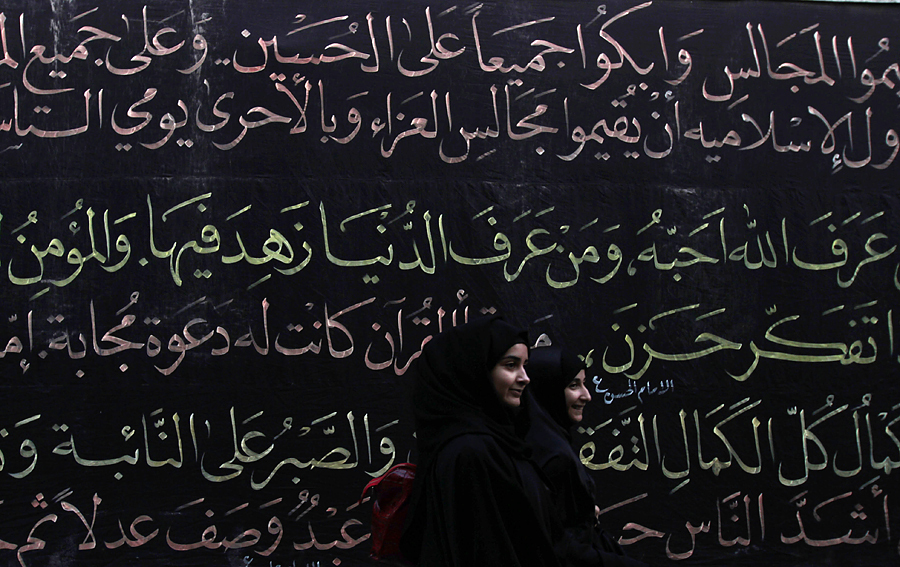 يموا المجالس وابكوا جميعاً على الحسين وعلى جميع
ول الإسلاميه أن يقيموا مجالس العزاء وبالأحرى يومي التاس
عرف الله أحبّهُ، ومن عرف الدُنيا زهد فيها. والمؤمنُ
ا تفكّر حزن، القرآن كانت له دعوة مجابة.
الامام الحسن ع
كمال كُلّ الكمال والصبر على النَّائبة
أشدَّ النَّاس عبدٌ وصف عدلاً ثمّ